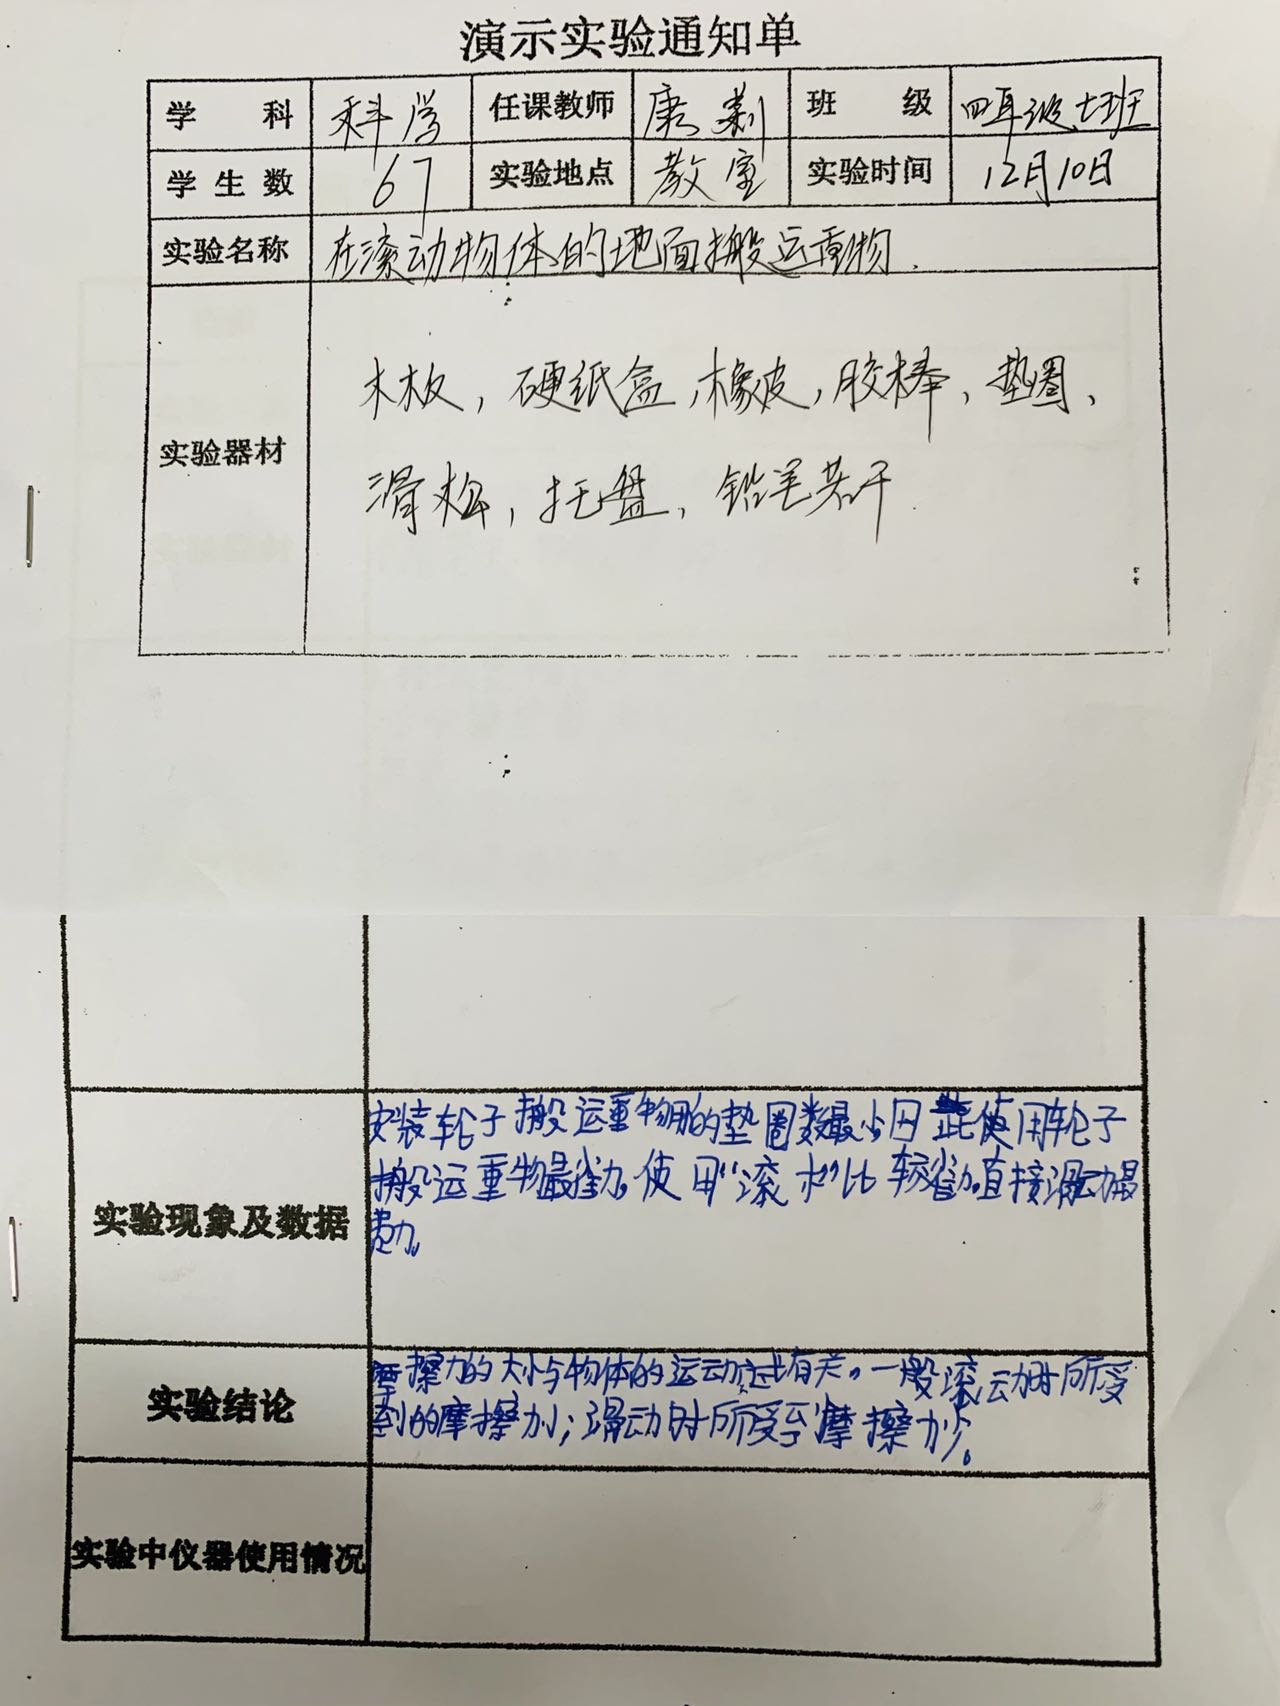 演示实验通知单
学 科 科学 任课教师 康 班 级 四年级七班
学生数 67 实验地点 教室 实验时间 12月10日
实验名称 在滚动物体的地面搬运重物.
木板,硬纸盒,橡皮,胶棒,垫圈,
实验器材
滑轮,托盘,铅笔若干.
安装轮子搬运重物用的垫圈数最少,因此使用轮子
搬运重物最省力。使用"滚木"比较省力。直接滑动最
实验现象及数据
费力。
摩擦力的大小与物体的运动方式有关。一般滚动时所受
实验结论
到的摩擦力小;滑动时所受到摩擦力
实验中仪器使用情况